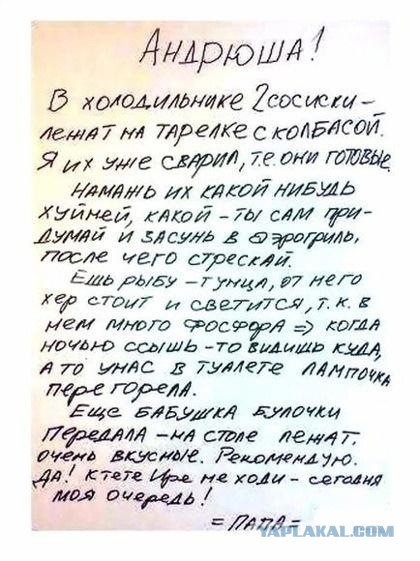 Андрюша!
В холодильнике 2 сосиски -
лежат на тарелке с колбасой.
Я их уже сварил, т.е. они готовые.
Намажь их какой нибудь
хуйней, какой - ты сам при-
думай и засунь в аэрогриль,
после чего стрескай.
Ешь рыбу - тунца, от него
хер стоит и светится, т.к. в
нем много фосфора => когда
ночью ссышь - то видишь куда,
а то у нас в туалете лампочка
перегорела.
Еще бабушка булочки
передала - на столе лежат.
очень вкусные. Рекомендую.
Да! К тете Ире не ходи - сегодня
моя очередь!
= Папа =
YAPLAKAL.COM